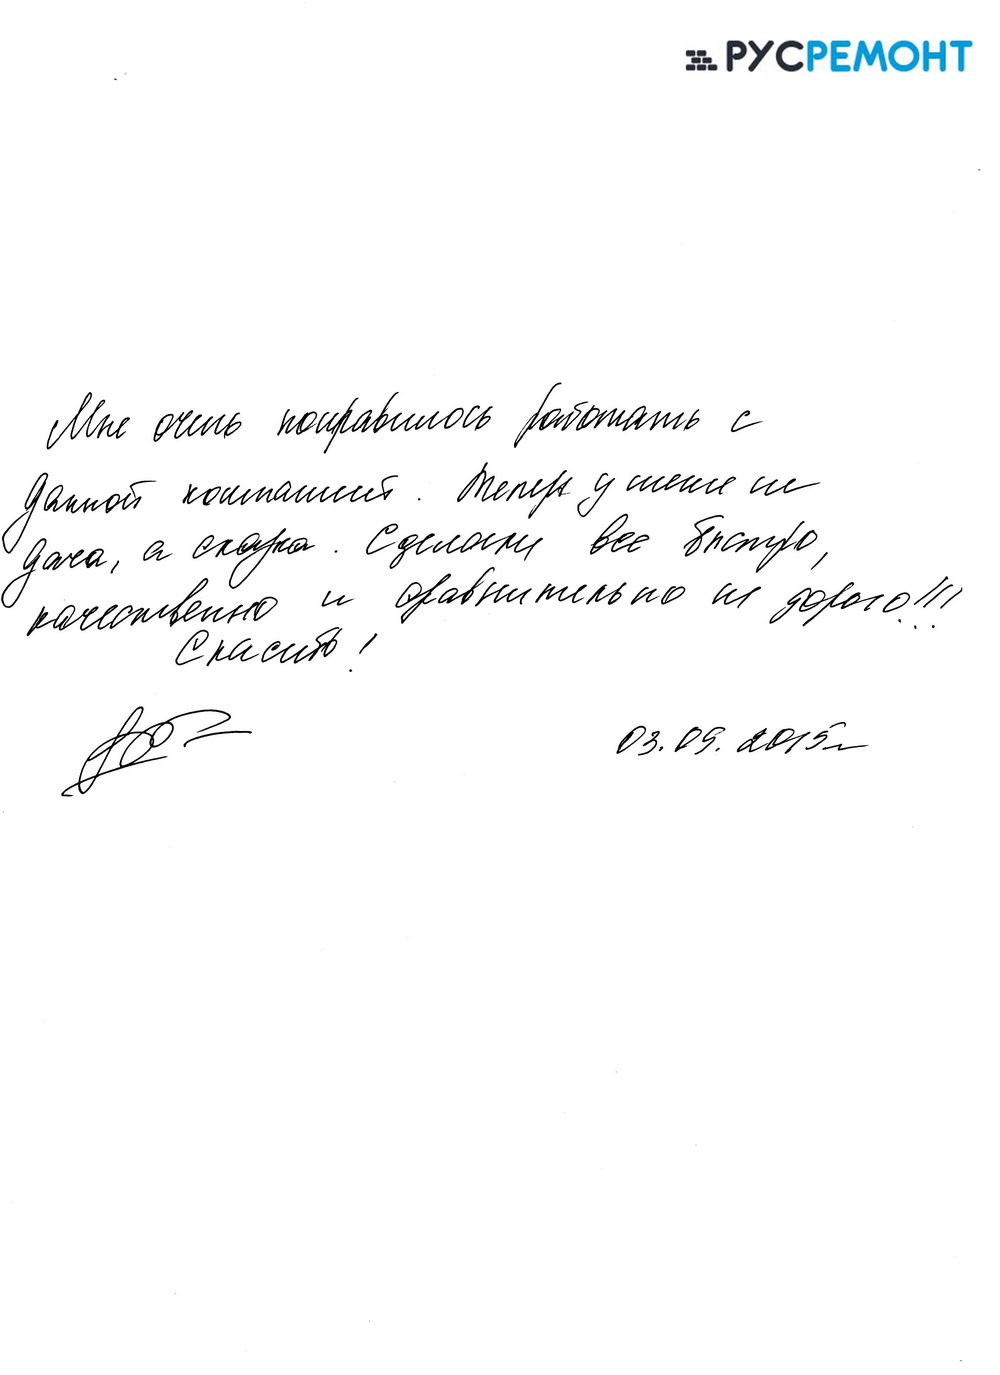 РУСРЕМОНТ
Мне очень понравилось работать с
данной компанией. Теперь у меня не
дача, а сказка. Сделали все быстро,
качественно и сравнительно не дорого!!!
Спасибо!
03.09.2015г